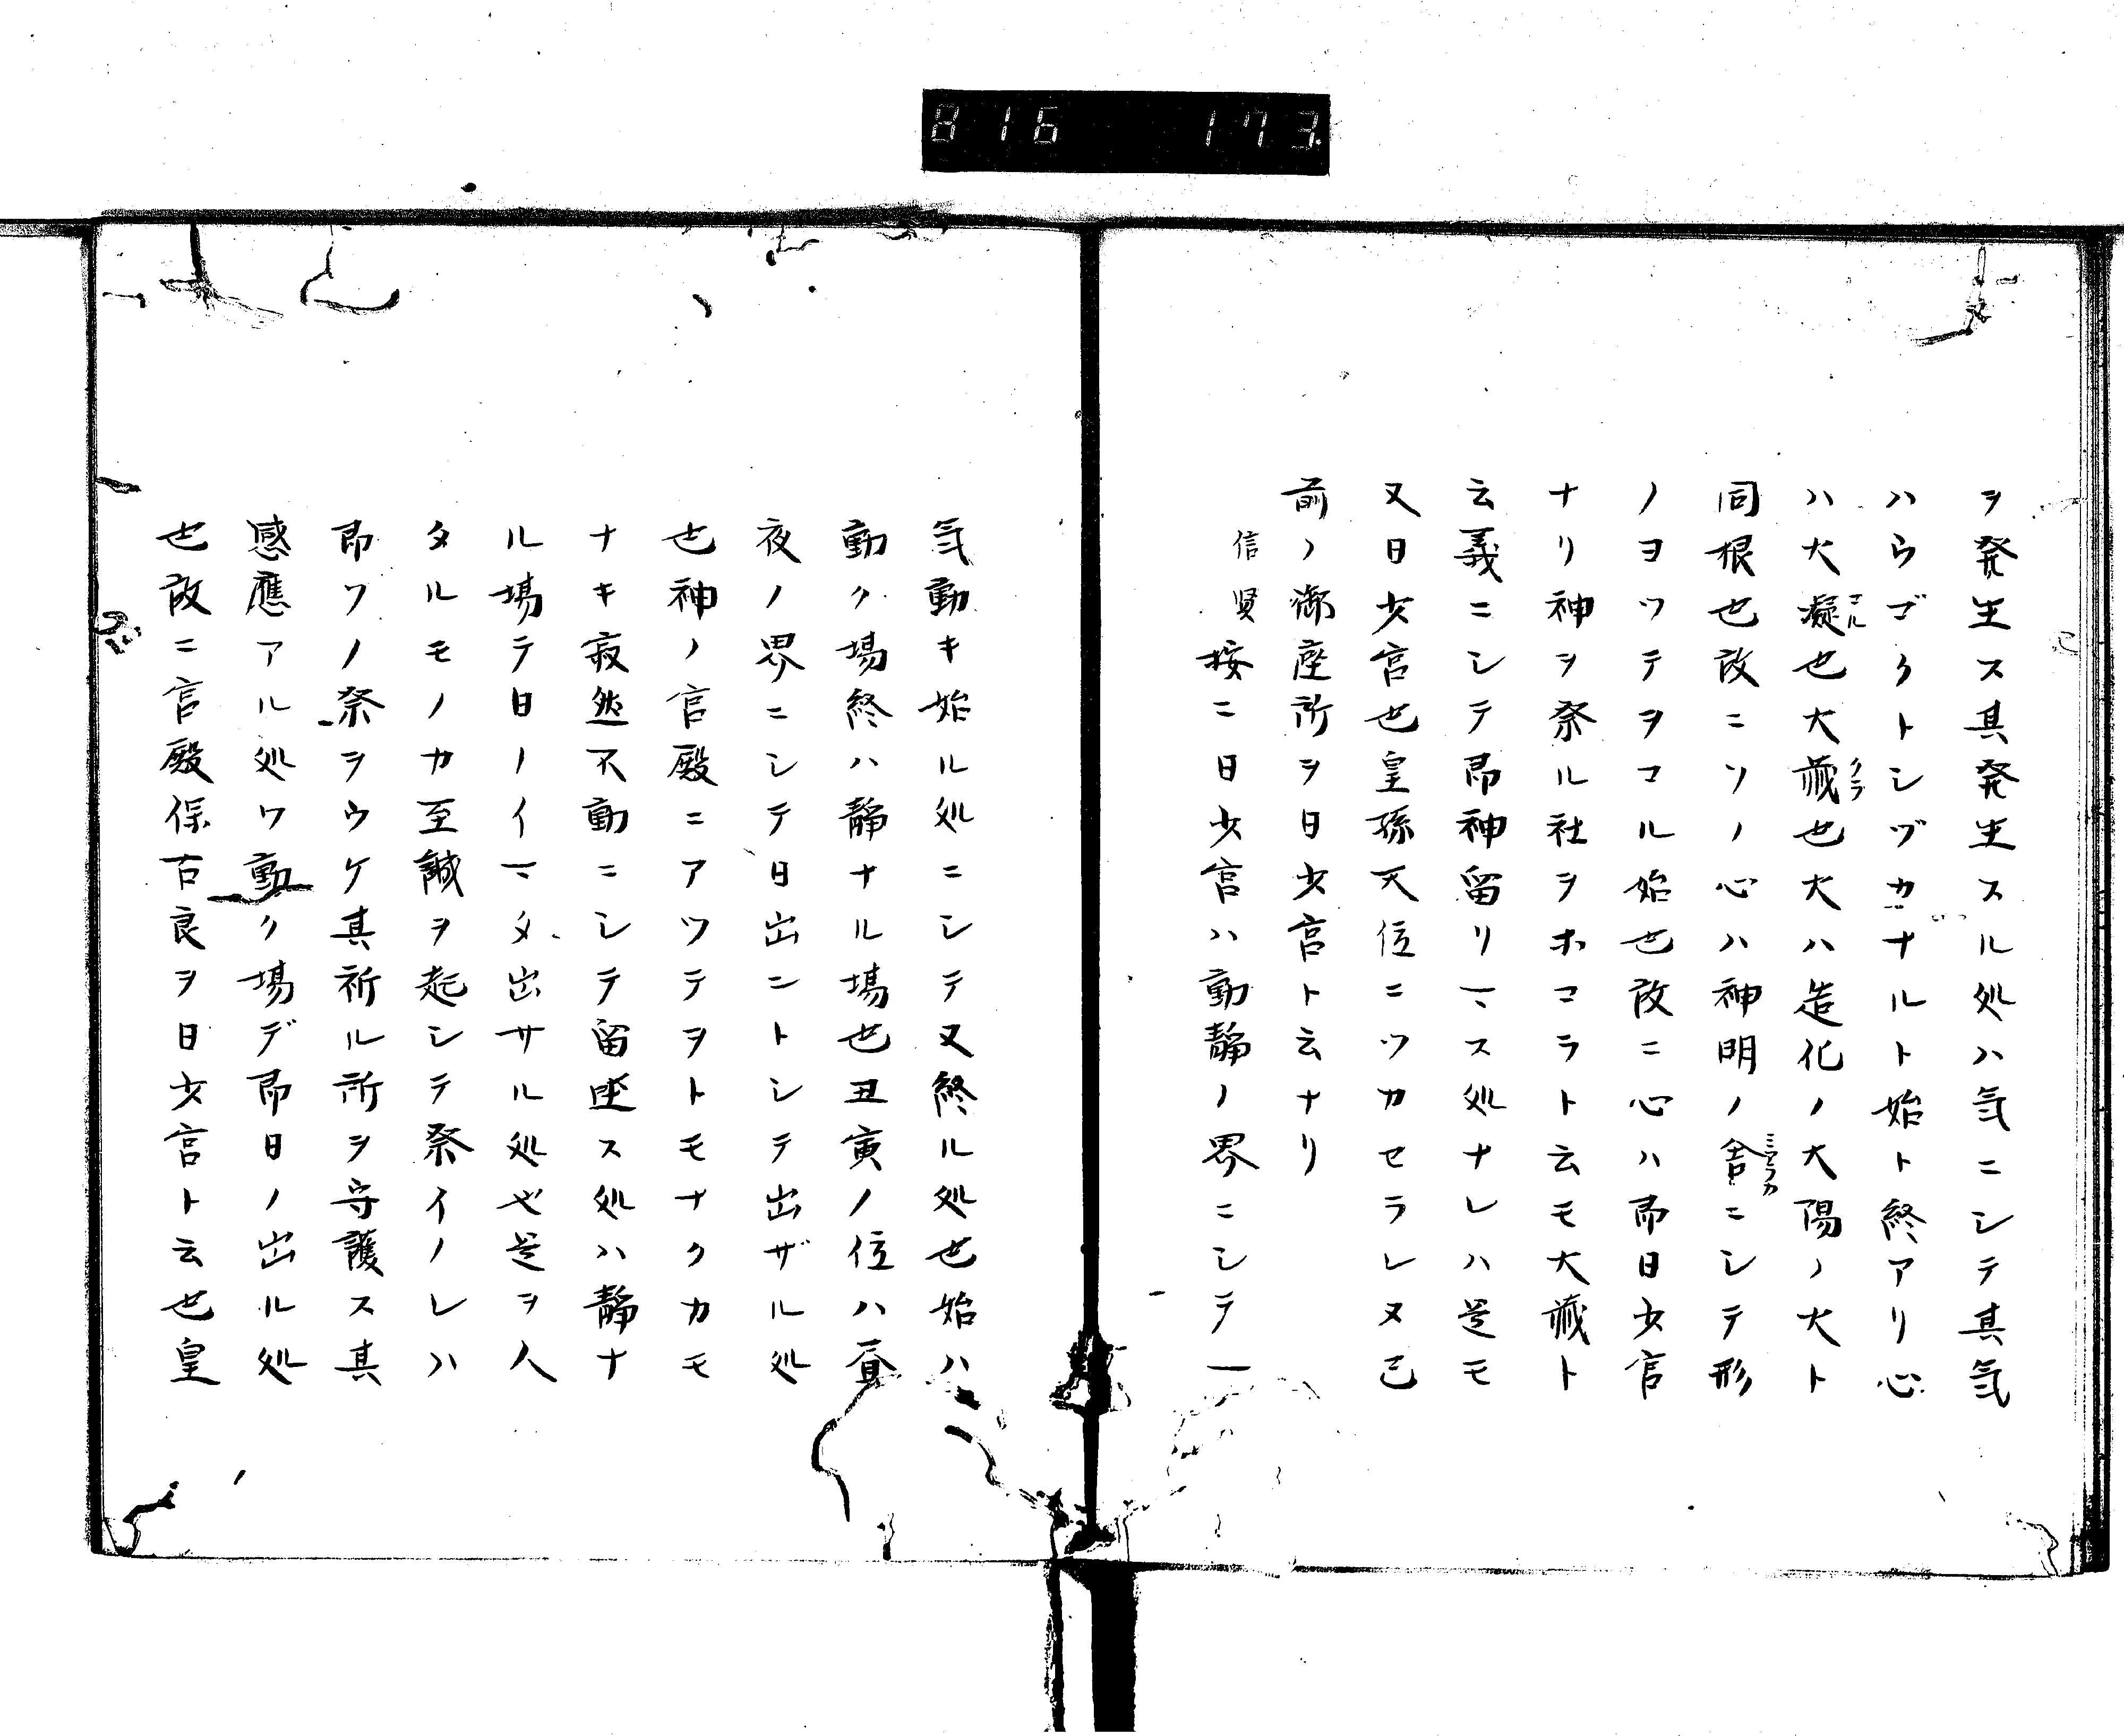 816 173
ヲ発生ス其発生スル処ハ気ニシテ其気
ハウゴクトシヅカナルト始ト終アリ心
ハ大凝コル也大蔵クラ也大ハ造化ノ大陽ノ大ト
同根也故ニソノ心ハ神明ノ舎ミアラカニシテ形
ノヨツテヲコル始也故ニ心ハ即日少宮
ナリ神ヲ祭ル社ヲホコラト云モ大蔵ト
云義ニシテ即神留リマス処ナレハ是モ
又日少宮也皇孫天位ニツカセラレヌ已
前ノ御座所ヲ日少宮ト云ナリ
信賢按ニ日少宮ハ動静ノ界ニシテ一
気動キ始ル処ニシテ又終ル処也始ハ
動ク場終ハ静ナル場也丑寅ノ位ハ昼
夜ノ界ニシテ日出ントシテ出ザル処
也神ノ宮殿ニアツテヲトモナクカモ
ナキ寂然不動ニシテ留坐ス処ハ静ナ
ル場テ日ノイマタ出サル処也是ヲ人
タルモノカ至誠ヲ起シテ祭イノレハ
即ワノ祭ヲウケ其祈ル所ヲ守護ス其
感應アル処ワ動ク場デ即日ノ出ル処
也故ニ宮殿保古良ヲ日少宮ト云也皇